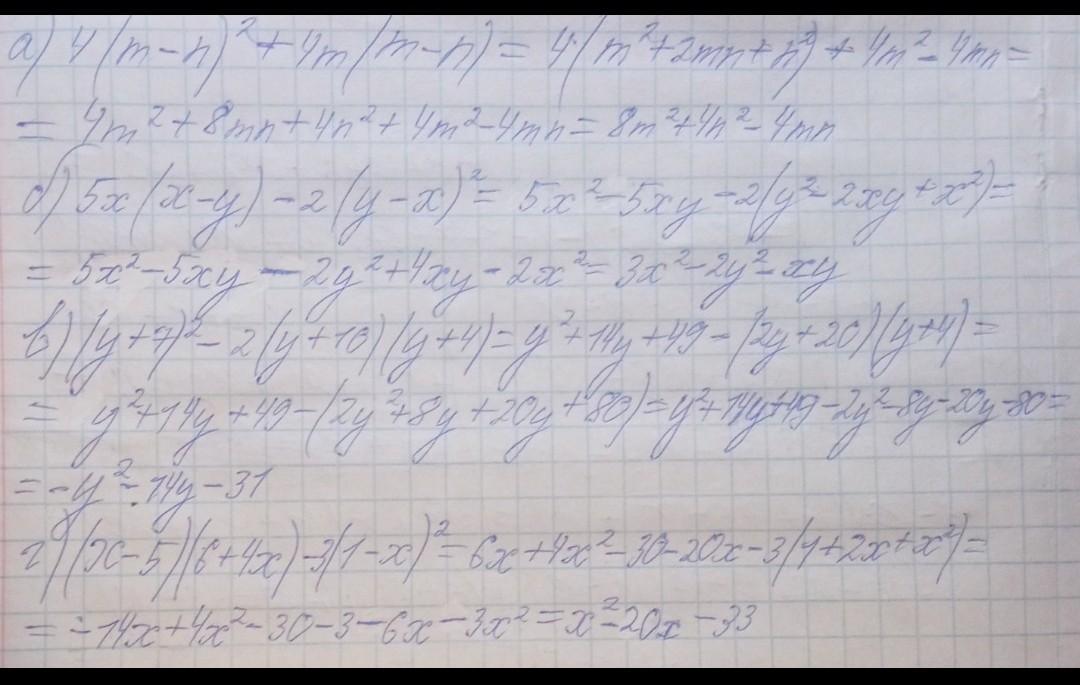 а) 4(m-n)²+4m(m-n)=4(m²+2mn+n²)+4m²-4mn=
=4m²+8mn+4n²+4m²-4mn=8m²+4n²-4mn
б) 5x(x-y)-2(y-x)²=5x²-5xy-2(y²-2xy+x²)=
=5x²-5xy-2y²+4xy-2x²=3x²-2y²-xy
в) (y+7)²-2(y+10)(y+4)=y²+14y+49-(2y+20)(y+4)=
=y²+14y+49-(2y²+8y+20y+80)=y²+14y+49-2y²-8y-20y-80=
=-y²-14y-31
г) (x-5)(6+4x)-3(1-x)²=6x+4x²-30-20x-3(1+2x+x²)=
=-14x+4x²-30-3-6x-3x²=x²-20x-33